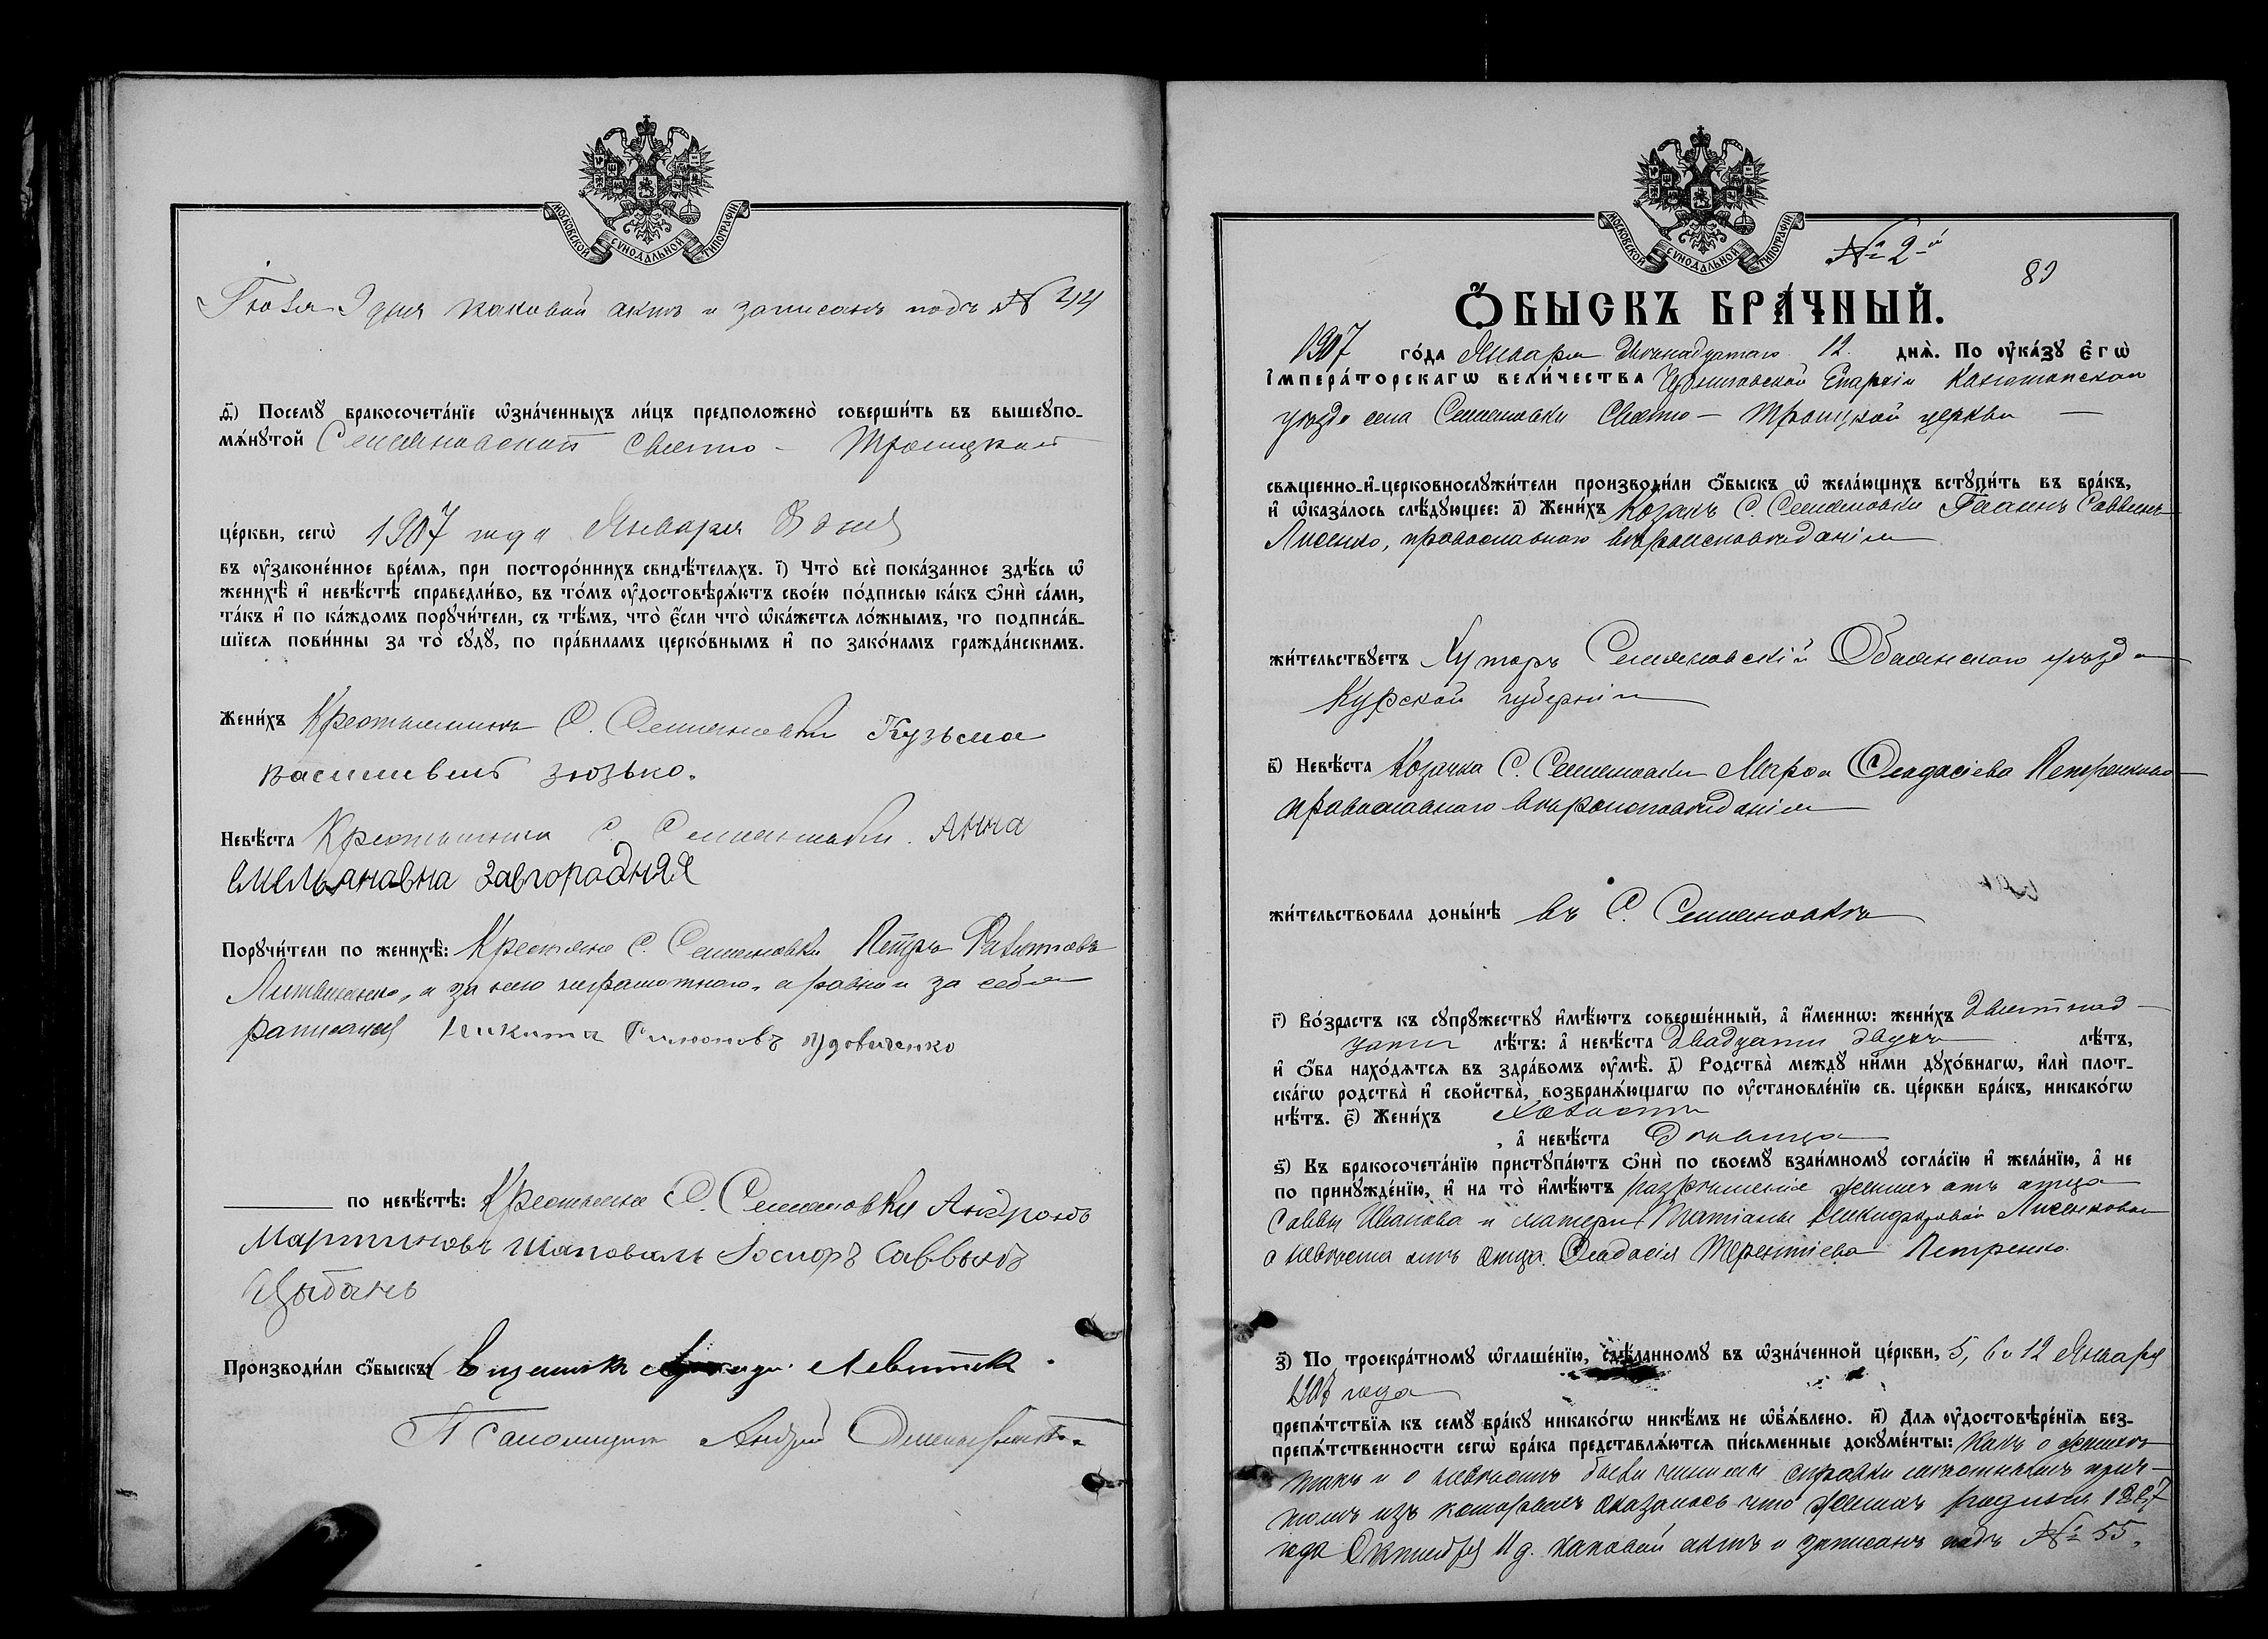 МОСКОВСКОЙ СУНОДАЛЬНОЙ ТИПОГРАФІИ
дня каковой актъ и записанъ подъ № 44
д҃і) Посемꙋ бракосочета́нїе ѡ҆зна́ченныхъ ли́цъ предположено̀ соверши́ть въ вышеꙋпо-
мѧ́нꙋтой Семяновской Свято - Троицкой
це́ркви, сегѡ̀ 1907 года Января 8 дня
въ ᲂу҆законе́нное вре́мѧ, при посторо́ннихъ свидѣ́телѧхъ. і҃) Что̀ всѐ пока́занное здѣ́сь ѡ҆
женихѣ̀ и҆ невѣ́стѣ справедли́во, въ то́мъ ᲂу҆достовѣрѧ́ютъ свое́ю по́дписью ка́къ ѻ҆нѝ са́ми,
та́къ и҆ по ка́ждомъ порꙋчи́тели, съ тѣ́мъ, что̀ є҆́сли что̀ ѡ҆ка́жетсѧ ло́жнымъ, то подписа́в-
шїесѧ пови́нны за то̀ сꙋдꙋ̀, по пра́виламъ церко́внымъ и҆ по зако́намъ гражда́нскимъ.
Жени́хъ Крестьянинъ С. Семяновки Кузьма
василивичъ зюзько.
Невѣ́ста Крестьянка С. Семяновки. Анна
емельянавна завгородняя
Порꙋчи́тели по женихѣ̀: Крестяне С. Семяновки Петръ
и за него неграмотнаго, а равно и за себя
росписался Никита Удовиченко
по невѣ́стѣ: Крестьяне С. Семяновки Андронъ
Мартиновъ Шаповалъ Іосифъ Саввинъ
Цыбань
Производи́ли ѻ҆́быскъ Священникъ Левитскій
Псаломщикъ Андрей
МОСКОВСКОЙ СУНОДАЛЬНОЙ ТИПОГРАФІИ
№ 2-й
ѺБЫСКЪ БРА́ЧНЫЙ.
1907 го́да Января Двѣнадцатаго 12 днѧ̀. По ᲂу҆ка́зꙋ є҆гѡ̀
і҆мпера́торскагѡ вели́чества Черниговской Епархіи Конотопскаго
уѣзда села Семяновки Свято - Троицкой церкви
свѧщенно-и҆-церковнослꙋжи́тели производи́ли ѻ҆́быскъ ѡ҆ жела́ющихъ встꙋпи́ть въ бра́къ,
и҆ ѡ҆каза́лось слѣ́дꙋющее: а҃) Жени́хъ Козакъ С. Семяновки Іоаннъ Саввинъ
Лисенко, православнаго вѣроисповѣданія
жи́тельствꙋетъ Хуторъ Семяновскій Обоянскаго уѣзда
Курской губерніи
в҃) Невѣ́ста Козачка С. Семяновки Марфа Феодосіева Петренкова
православнаго вѣроисповѣданія
жи́тельствовала доны́нѣ въ С. Семяновкѣ
г҃) Во́зрастъ къ сꙋпрꙋ́жествꙋ и҆мѣ́ютъ соверше́нный, а҆ и҆́меннѡ: жени́хъ девятнад-
цати лѣ́тъ: а҆ невѣ́ста двадцати двухъ лѣ́тъ,
и҆ ѻ҆́ба нахо́дѧтсѧ въ здра́вомъ ᲂу҆мѣ̀. д҃) Родства̀ междꙋ̀ ни́ми дꙋхо́внагѡ, и҆лѝ плот-
ска́гѡ родства̀ и҆ свойства̀, возбранѧ́ющагѡ по ᲂу҆становле́нїю св. це́ркви бра́къ, никако́гѡ
нѣ́тъ. є҃) Жени́хъ Холостъ
, а҆ невѣ́ста Дѣвица
ѕ҃) Къ бракосочета́нїю пристꙋпа́ютъ ѻ҆нѝ по своемꙋ̀ взаи́мномꙋ согла́сїю и҆ жела́нїю, а҆ не
по принꙋжде́нїю, и҆ на то̀ и҆мѣ́ютъ разрѣшеніе женихъ отъ отца
Саввы Иванова и матери Татіаны Никифоровой Лисенковой
а невѣста отъ отца Феодосія Терентіева Петренко.
з҃) По троекра́тномꙋ ѡ҆глаше́нїю, сдѣ́ланномꙋ въ ѡ҆зна́ченной це́ркви, 5, 6 и 12 Января
1907 года
препѧ́тствїѧ къ семꙋ̀ бра́кꙋ никако́гѡ никѣ́мъ не ѡ҆б̾ѧ́влено. и҃) Длѧ ᲂу҆достовѣре́нїѧ без-
препѧ́тственности сегѡ̀ бра́ка представлѧ́ютсѧ пи́сьменные докꙋме́нты: какъ о женихѣ
такъ и о невѣстѣ были чинимы справки мѣстнымъ прич-
томъ изъ которыхъ оказалось что женихъ родился 1887
года Октября 11 д. каковой актъ и записанъ подъ № 55,